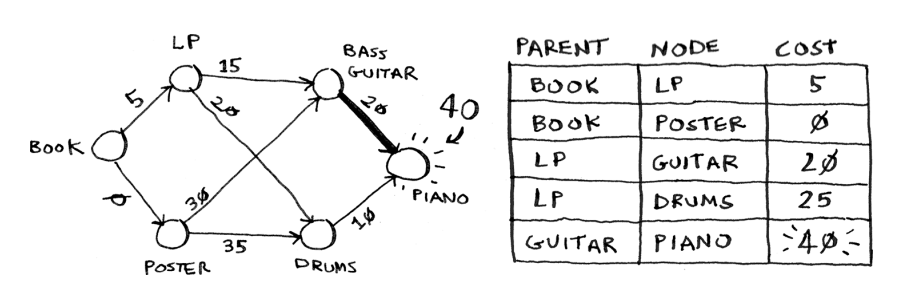 LP
BASS
GUITAR
15
5
20
20
40
BOOK
PIANO
0
30
10
35
POSTER
DRUMS
PARENT NODE COST
BOOK LP 5
BOOK POSTER Ø
LP GUITAR 2Ø
LP DRUMS 25
GUITAR PIANO 4Ø